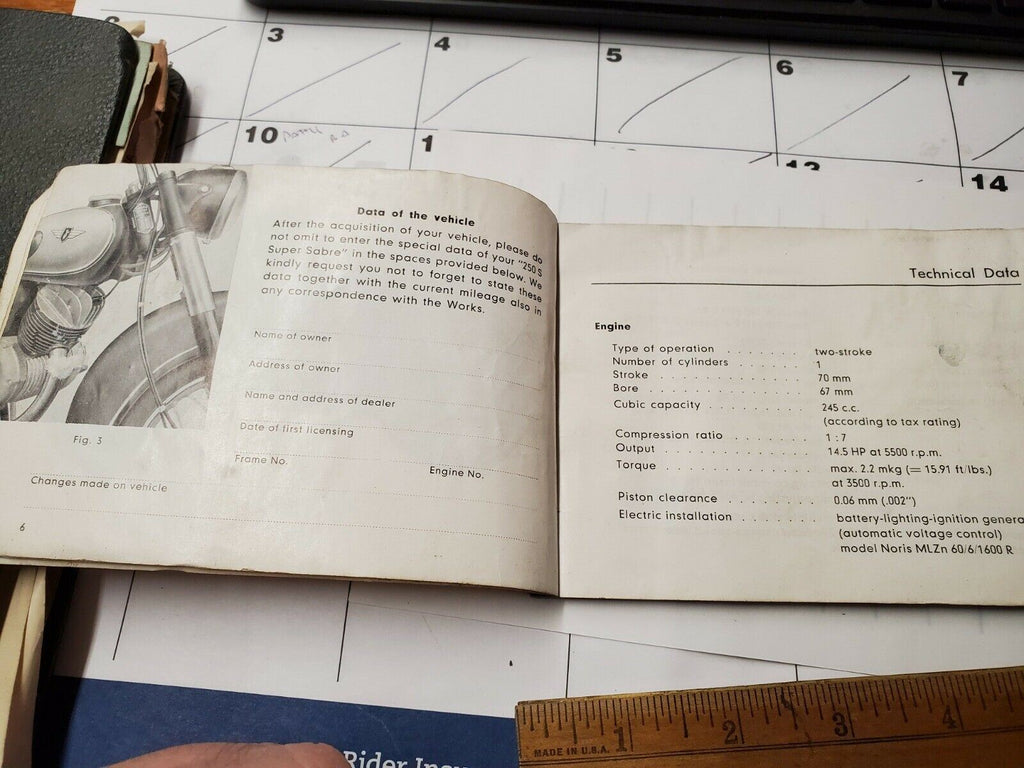 3
4
5
6
7
10
1
14
Data of the vehicle
After the acquisition of your vehicle, please do
not omit to enter the special data of your "250 S
Super Sabre" in the spaces provided below. We
kindly request you not to forget to state these
data together with the current mileage also in
any correspondence with the Works.
Name of owner
Address of owner
Name and address of dealer
Date of first licensing
Frame No. Engine No.
Fig. 3
Changes made on vehicle
6
Technical Data
Engine
Type of operation . . . . . . . two-stroke
Number of cylinders . . . . . . 1
Stroke . . . . . . . . . . . . 70 mm
Bore . . . . . . . . . . . . 67 mm
Cubic capacity . . . . . . . . 245 c.c.
(according to tax rating)
Compression ratio . . . . . . . 1 : 7
Output . . . . . . . . . . . . 14.5 HP at 5500 r.p.m.
Torque . . . . . . . . . . . . max. 2.2 mkg (= 15.91 ft/lbs.)
at 3500 r.p.m.
Piston clearance . . . . . . . . 0.06 mm (.002")
Electric installation . . . . . . . battery-lighting-ignition genera
(automatic voltage control)
model Noris MLZn 60/6/1600 R
Rider
1 2 3 4
MADE IN U.S.A.